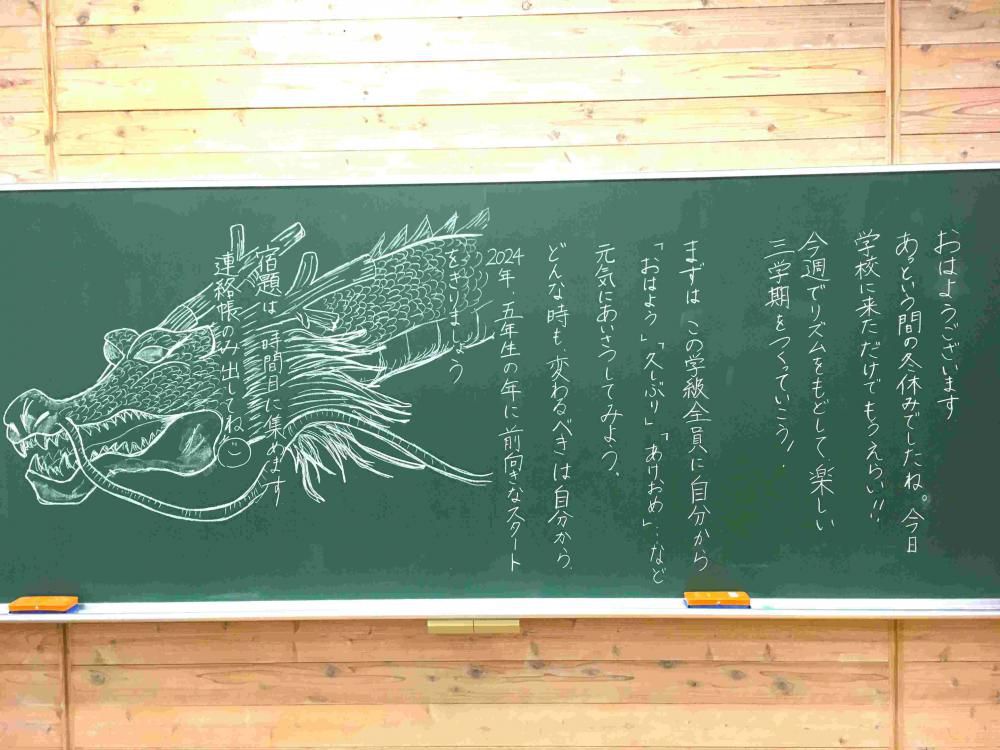 おはようございます
あっという間の冬休みでしたね。今日
学校に来ただけでもうえらい!!
今週でリズムをもどして、楽しい
三学期をつくっていこう!
まずは、この学級全員に自分から
「おはよう」「久しぶり」「あけおめ」…など
元気にあいさつしてみよう、
どんな時も、変わるべきは自分から、
2024年、五年生の年に前向きなスタート
をきりましょう
宿題は一時間目に集めます
連絡帳のみ出してね